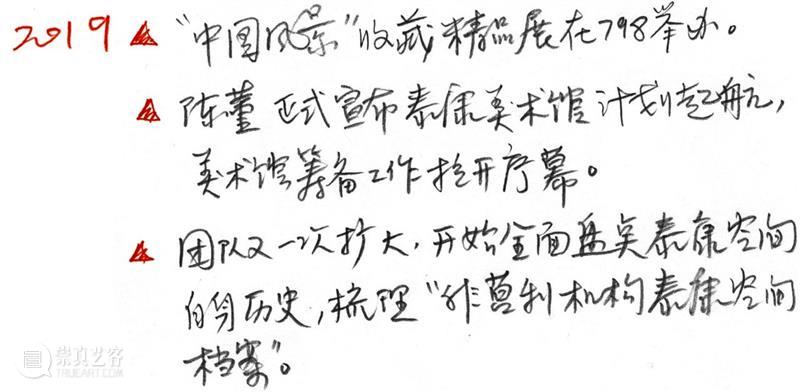 2019 "中国风景"收藏精品展在798举办。
陈董正式宣布泰康美术馆计划起航,
美术馆筹备工作拉开序幕。
团队又一次扩大,开始全面盘点泰康空间
自身历史,梳理"非营利机构泰康空间
档案"。
崇真艺客
TRUEART.COM